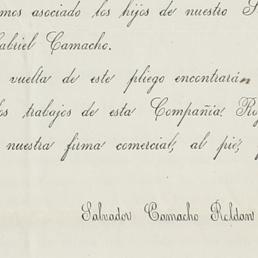 mos asociado los hijos de nuestro
abriel Camacho.
vuelta de este pliego encontrarán
los trabajos de esta Compañia.
nuestra firma comercial, al pié,
Salvador Camacho Roldan